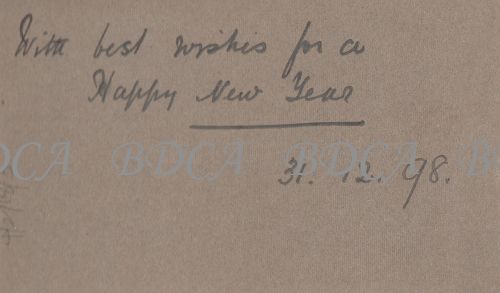 With best wishes for a
Happy New Year
31. 12. 98.
BDCA BDCA BDCA